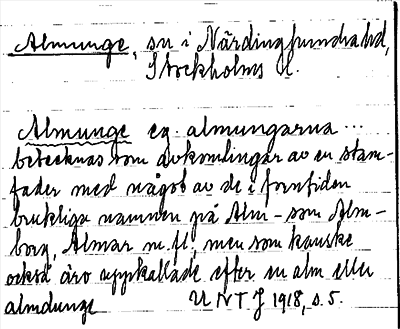 Almunge, sn i Närdinghundra hd,
Stockholms l.
Almunge eg. almungarna ...
betecknas som avkomlingar av en stam-
fader med något av de i forntiden
brukliga namnen på Alm- som Alm-
borg, Almar m.fl., men som kanske
också äro uppkallade efter en alm eller
almdunge UNT J 1918, s. 5.